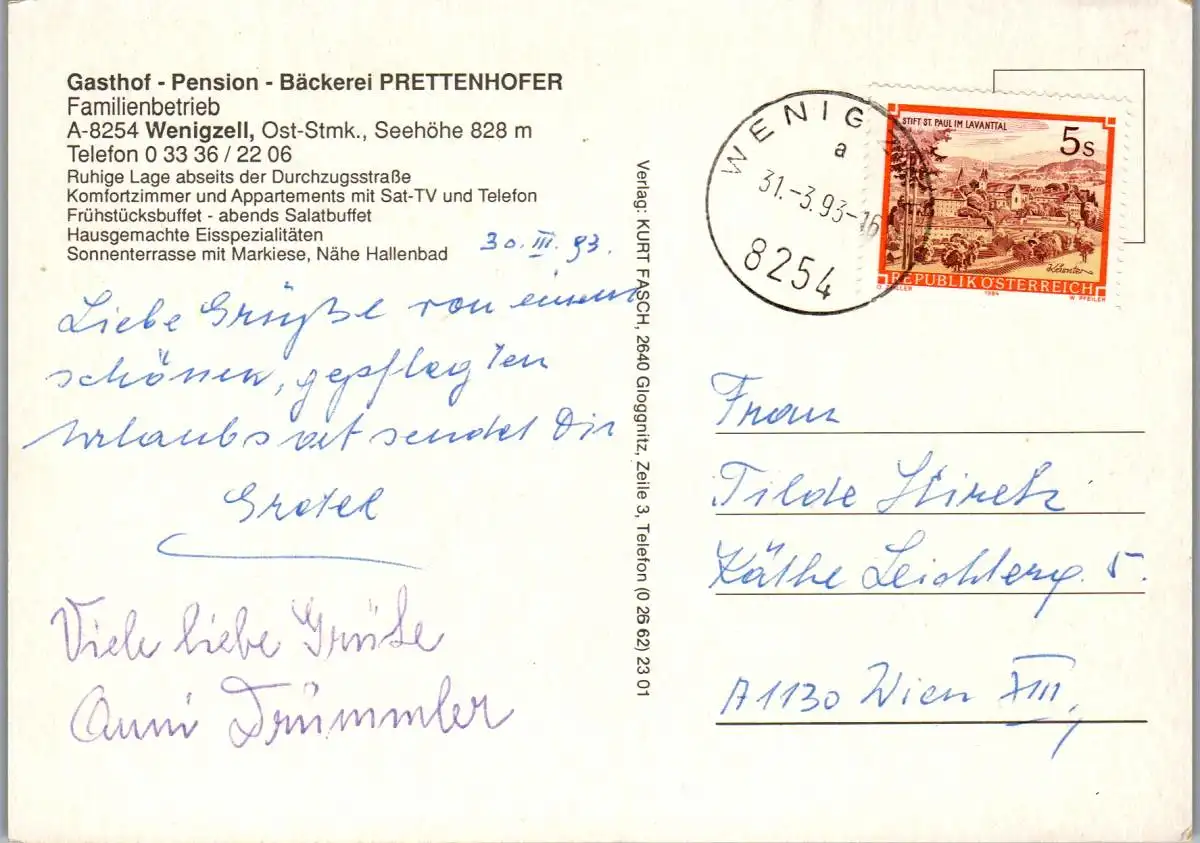 Gasthof - Pension - Bäckerei PRETTENHOFER
Familienbetrieb
A-8254 Wenigzell, Ost-Stmk., Seehöhe 828 m
Telefon 0 33 36 / 22 06
Ruhige Lage abseits der Durchzugsstraße
Komfortzimmer und Appartements mit Sat-TV und Telefon
Frühstücksbuffet - abends Salatbuffet
Hausgemachte Eisspezialitäten
Sonnenterrasse mit Markiese, Nähe Hallenbad
30. III. 93.
Liebe Grüße von einem
schönen, gepflegten
Urlaubsort sendet Dir
Gretel
Viele liebe Grüße
Anni Drümmler
Verlag: KURT FASCH, 2640 Gloggnitz, Zeile 3, Telefon (0 26 62) 23 01
WENIG
a
31.-3.93-16
8254
STIFT ST. PAUL IM LAVANTTAL
5s
Kärnten
REPUBLIK ÖSTERREICH
1984
W. PFEILER
Frau
Tilde
Käthe Leichterg. 5.
A1130 Wien XIII,